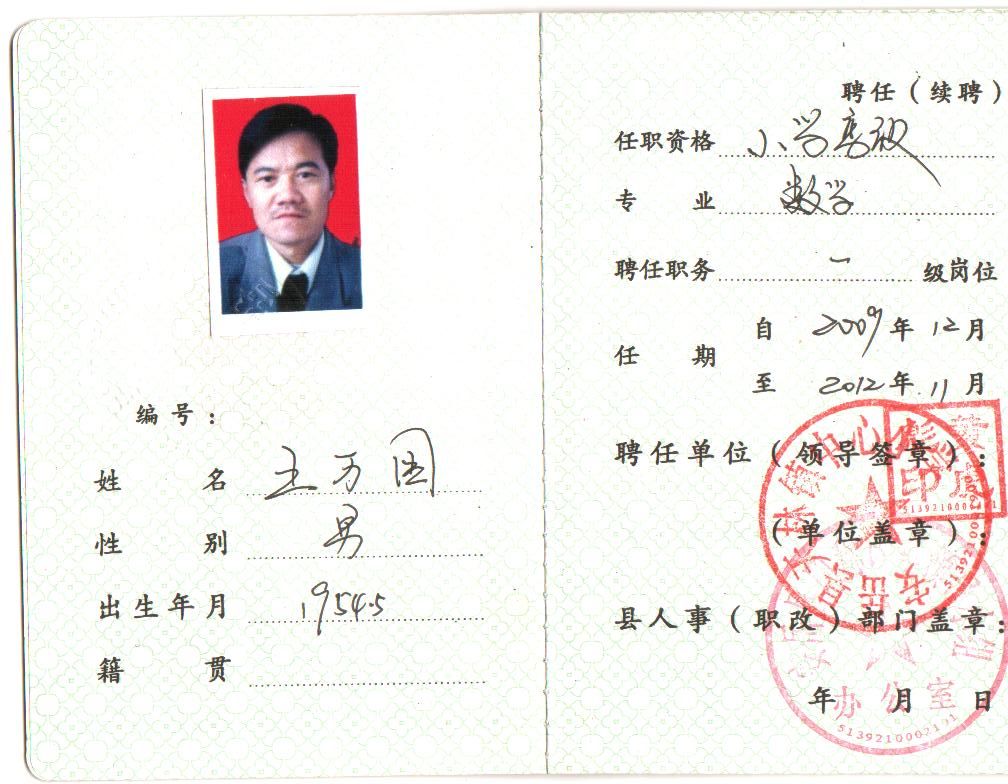 编号：
姓名 王万国
性别 男
出生年月 1954.5
籍贯
聘任（续聘）
任职资格 小学高级
专业 数学
聘任职务 一 级岗位
任期 自 2009年12月
至 2012年11月
聘任单位（领导签章）：
（单位盖章）：
县人事（职改）部门盖章：
年 月 日
安岳县
镇中心
5139210009
印
5139210000
办公室
5139210002191